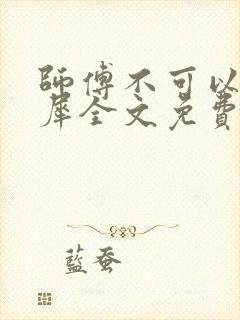 師傅不可以
犀全文免費
藍蚕